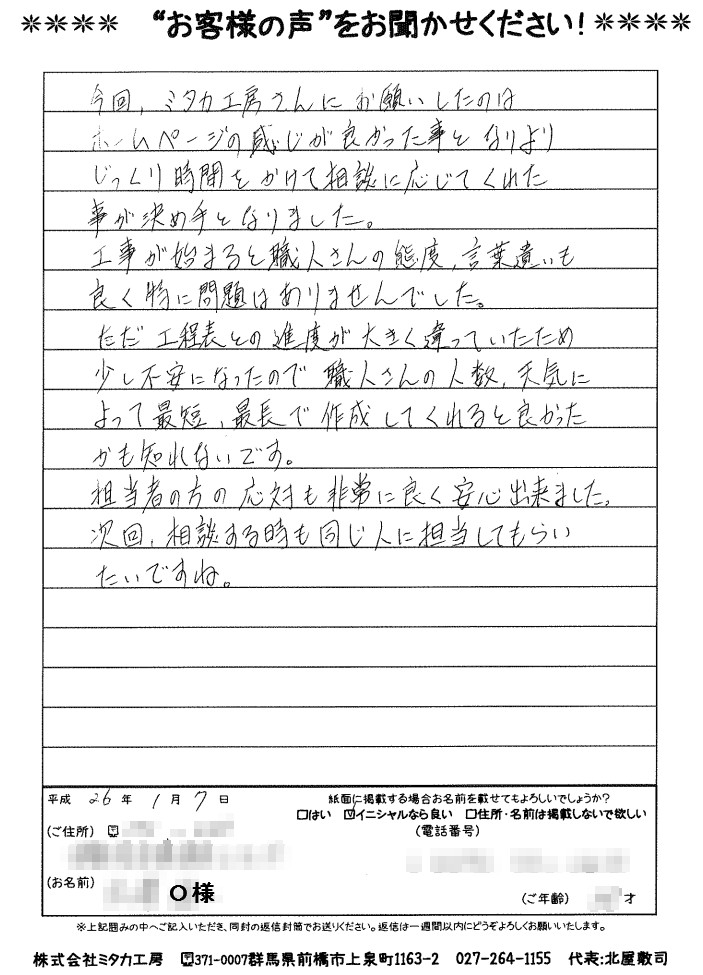 **** “お客様の声”をお聞かせください！****
今回，ミタカ工房さんにお願いしたのは
ホームページの感じが良かった事と なりより
じっくり時間をかけて相談に応じてくれた
事が決め手となりました。
工事が始まると職人さんの態度，言葉遣いも
良く特に問題はありませんでした。
ただ 工程表との進度が大きく違っていたため
少し不安になったので 職人さんの人数，天気に
よって最短，最長で作成してくれると良かった
かも知れないです。
担当者の方の応対も非常に良く安心出来ました。
次回，相談する時も同じ人に担当してもらい
たいですね。
平成 26 年 1 月 7 日
紙面に掲載する場合お名前を載せてもよろしいでしょうか？
□はい ☑イニシャルなら良い □住所・名前は掲載しないで欲しい
(ご住所) 〒
(電話番号)
(お名前) O様
(ご年齢) 才
※上記囲みの中へご記入いただき、同封の返信封筒でお送りください。返信は一週間以内にどうぞよろしくお願いいたします。
株式会社ミタカ工房 〒371-0007群馬県前橋市上泉町1163-2 027-264-1155 代表:北屋敷司